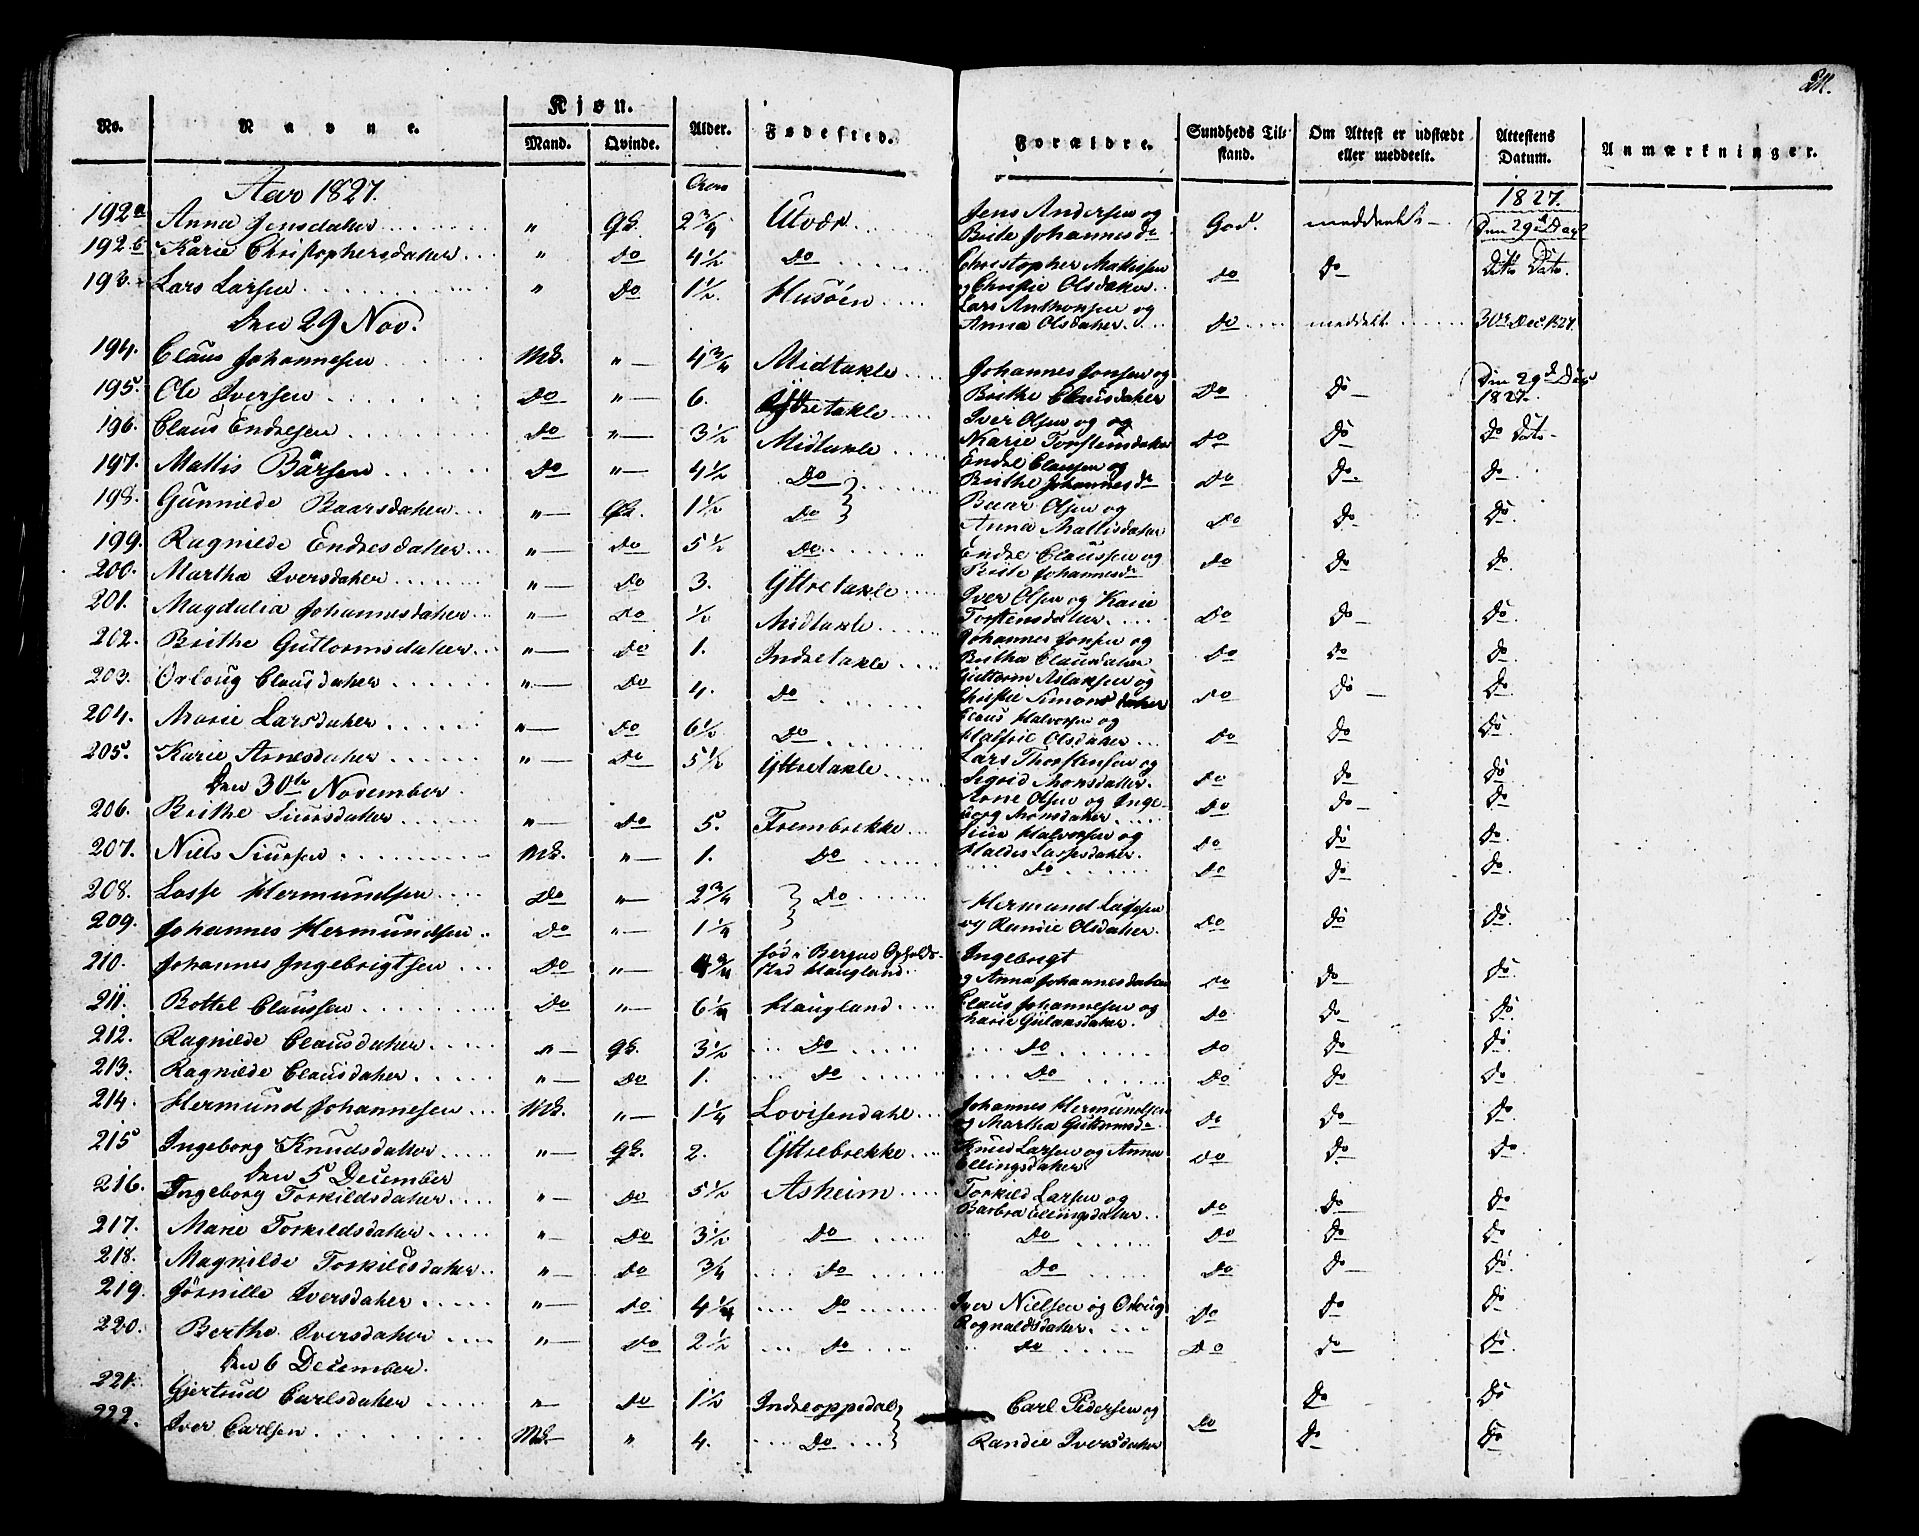 211.
No.
Navne.
Kjøn.
Mand.
Qvinde.
Alder.
Fødested.
Forældre.
Sundheds Til-
stand.
Om Attest er udstædt
eller meddeelt.
Attestens
Datum.
Anmærkninger.
Aar 1827.
1827.
192a Anna Jensdatter " Qk. 2 3/4 Utvær Jens Andersen og
Brite Johannesdr God. meddeelt Den 29d Decr
192.b Karie Christophersdatter " Do 4 1/2 Do Christopher Mathisen
og Christie Olsdatter Do Do Ditto Dato.
193. Lars Larsen " Do 1 1/2 Husöen Lars Anthonsen og
Anna Olsdatter Do meddelt 30te Dec 1827.
Den 29 Nov.
194. Claus Johannesen Mk. " 4 3/4 Midtakle Johannes Jonsen og
Brithe Clausdatter Do Do Den 29d Decr
1827.
195. Ole Iversen Do " 6. Yttretakle Iver Olsen og og
Marie Torstensdatter Do Do Do Dato
196. Claus Endresen Do " 3 1/2 Midtakle Endre Clausen og
Brithe Johannesdr Do Do. Do
197. Mattis Bårsen Do " 4 1/2 Do Baar Olsen og
Anna Mattisdatter Do Do Do.
198. Gunnilde Baarsdatter " Qk. 1 1/2 Do
199. Ragnilde Endresdatter " Do 5 1/2 Do Endre Claussen og
Brite Johannesdr Do Do Do.
200. Martha Iversdatter " Do 3. Yttretakle Iver Olsen og Karie
Torstensdatter Do Do Do.
201. Magdalia Johannesdatter " Do 1/2 Midtakle Johannes Jonsen og
Britha Clausdatter Do Do Do.
202. Brithe Guttormsdatter " Do 1. Indretakle Guttorm Aslaksen og
Christie Simonsdatter Do Do Do
203. Orloug Clausdatter " Do 4. Do Claus Halvorsen og
Olsdatter Do Do Do.
204. Marie Larsdatter " Do 6 1/2 Do Lars Thorstensen og
Sigrid Monsdatter Do Do Do
205. Karie Arnesdatter " Do 5 1/2 Yttretakle Arne Olsen og Inge-
borg Monsdatter Do Do Do
Den 30te November.
206. Brithe Siursdatter " Do 5. Frembrekke Siur Halvorsen og
Haldis Lassesdatter. Do Do Do.
207. Niels Siursen Mk. " 1. Do Do Do Do Do
208. Lasse Hermundsen Do " 2 3/4 Do Hermund Lassesen
og Randie Olsdatter. Do Do Do.
209. Johannes Hermundsen Do " 1 1/4
210. Johannes Ingebrigtsen Do " fød i Bergen Opholds-
sted Haugland Ingebrigt
og Anna Johannesdatter Do Do Do.
211. Bottel Claussen Do " 6 1/4 Haugland Claus Johannesen og
Marie datter. Do Do Do
212. Ragnilde Clausdatter " Qk. 3 1/2 Do Do Do Do Do.
213. Ragnilde Clausdatter " Do 1. Do Do Do Do Do.
214. Hermund Johannesen Mk. " 1 1/4 Lovisendahl Johannes Hermundsen
og Martha Guttormsdr Do Do Do
215 Ingeborg Knudsdatter " Qk. 2. Yttrebrekke Knud Larsen og Anna
Ellingsdatter Do Do Do
Den 5 December
216. Ingeborg Torkildsdatter " Do 5 1/2 Asheim Torkild Larsen og
Barbra Ellingsdatter Do Do Do
217. Marie Torkildsdatter " Do 3 1/2 Do Do Do Do Do
218. Magnilde Torkildsdatter " Do 3/4 Do Do Do Do Do.
219. Jörnille Iversdatter " Do 4 1/4 Do Iver Nielsen og Orloug
Rognaldsdatter Do Do Do
220. Berthe Iversdatter " Do 2 1/2 Do Do Do Do Do.
Den 6 December.
221. Gjertrud Carlsdatter " Do 1 1/2 Indreoppedal Carl Pedersen og Do Do
222. Iver Carlsen Mk " 4. Do Randie Iversdatter Do Do Do